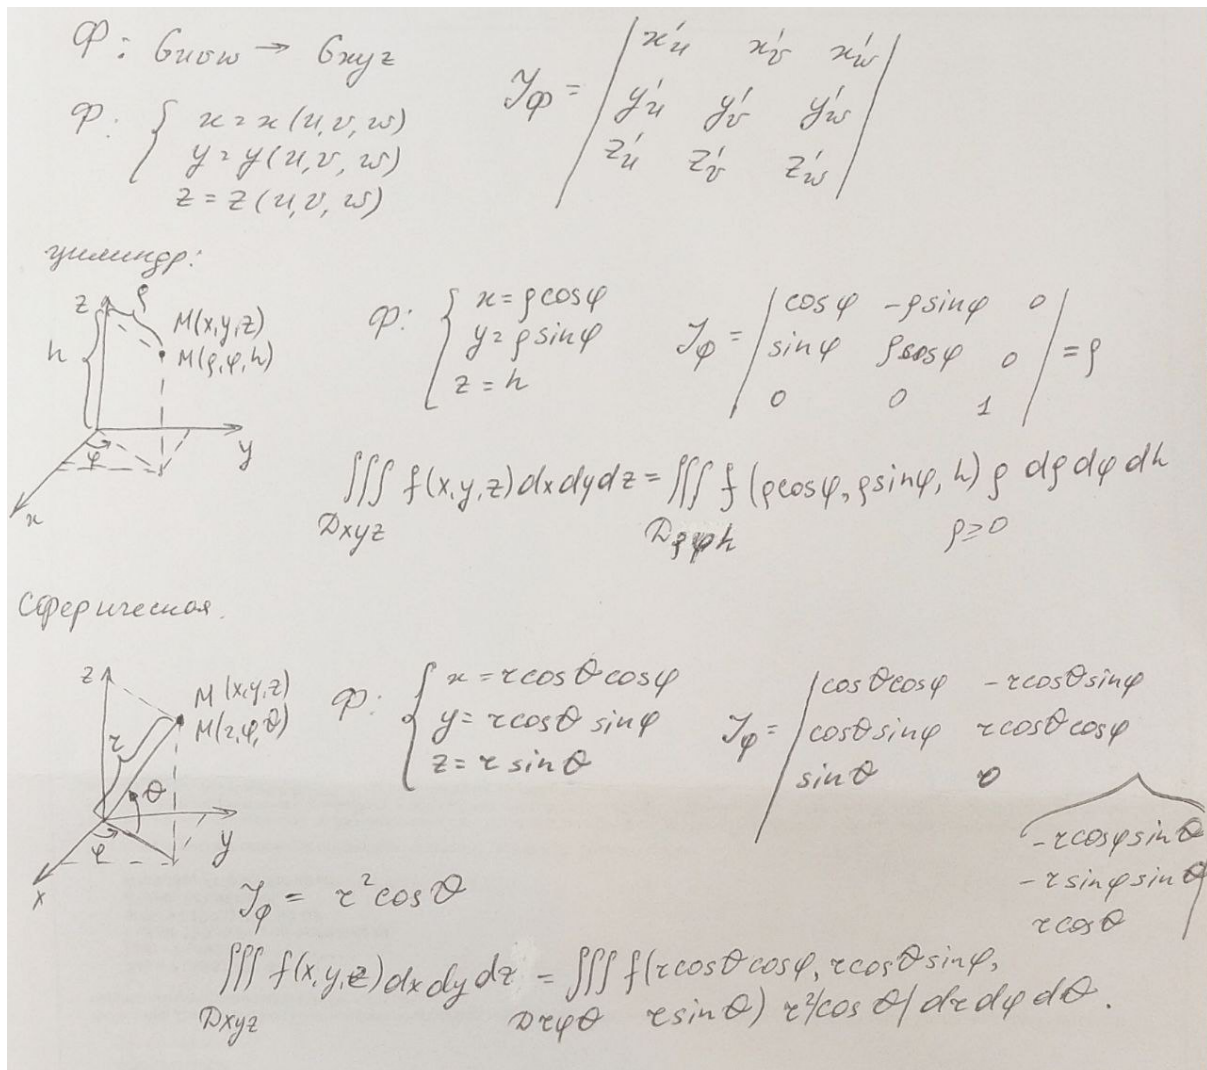 Φ: Guvw → Gxyz
Φ: { x = x(u,v,w)
y = y(u,v,w)
z = z(u,v,w)
J_Φ = | x'u x'v x'w |
| y'u y'v y'w |
| z'u z'v z'w |
цилиндр:
z ρ
h M(x,y,z)
M(ρ,φ,h)
φ y
x
Φ: { x = ρcosφ
y = ρsinφ
z = h
J_Φ = | cosφ -ρsinφ 0 |
| sinφ ρcosφ 0 | = ρ
| 0 0 1 |
∭ f(x,y,z)dxdydz = ∭ f(ρcosφ, ρsinφ, h) ρ dρdφdh
Dxyz Dρφh ρ≥0
Сферическая.
z M(x,y,z)
M(r,φ,θ)
r θ
φ y
x
Φ: { x = rcosθcosφ
y = rcosθ sinφ
z = r sinθ
J_Φ = | cosθcosφ -rcosθsinφ
| cosθsinφ rcosθcosφ
| sinθ 0
-rcosφsinθ
-rsinφsinθ
rcosθ |
J_Φ = r²cosθ
∭ f(x,y,z)dxdydz = ∭ f(rcosθcosφ, rcosθsinφ,
Dxyz Drφθ rsinθ) r²|cosθ| drdφdθ.